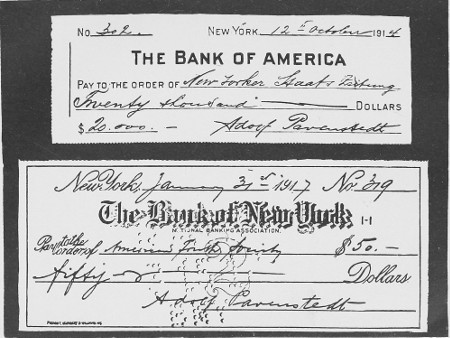 No. 302. New York 12th October 1914
The Bank of America
Pay to the order of New Yorker Staats Zeitung
Twenty thousand Dollars
$20.000.— Adolf Pavenstedt
New York, January 31st 1917 No. 319
The Bank of New York 1-1
NATIONAL BANKING ASSOCIATION.
Pay to the order of American Truth Society $50.—
fifty Dollars
Adolf Pavenstedt